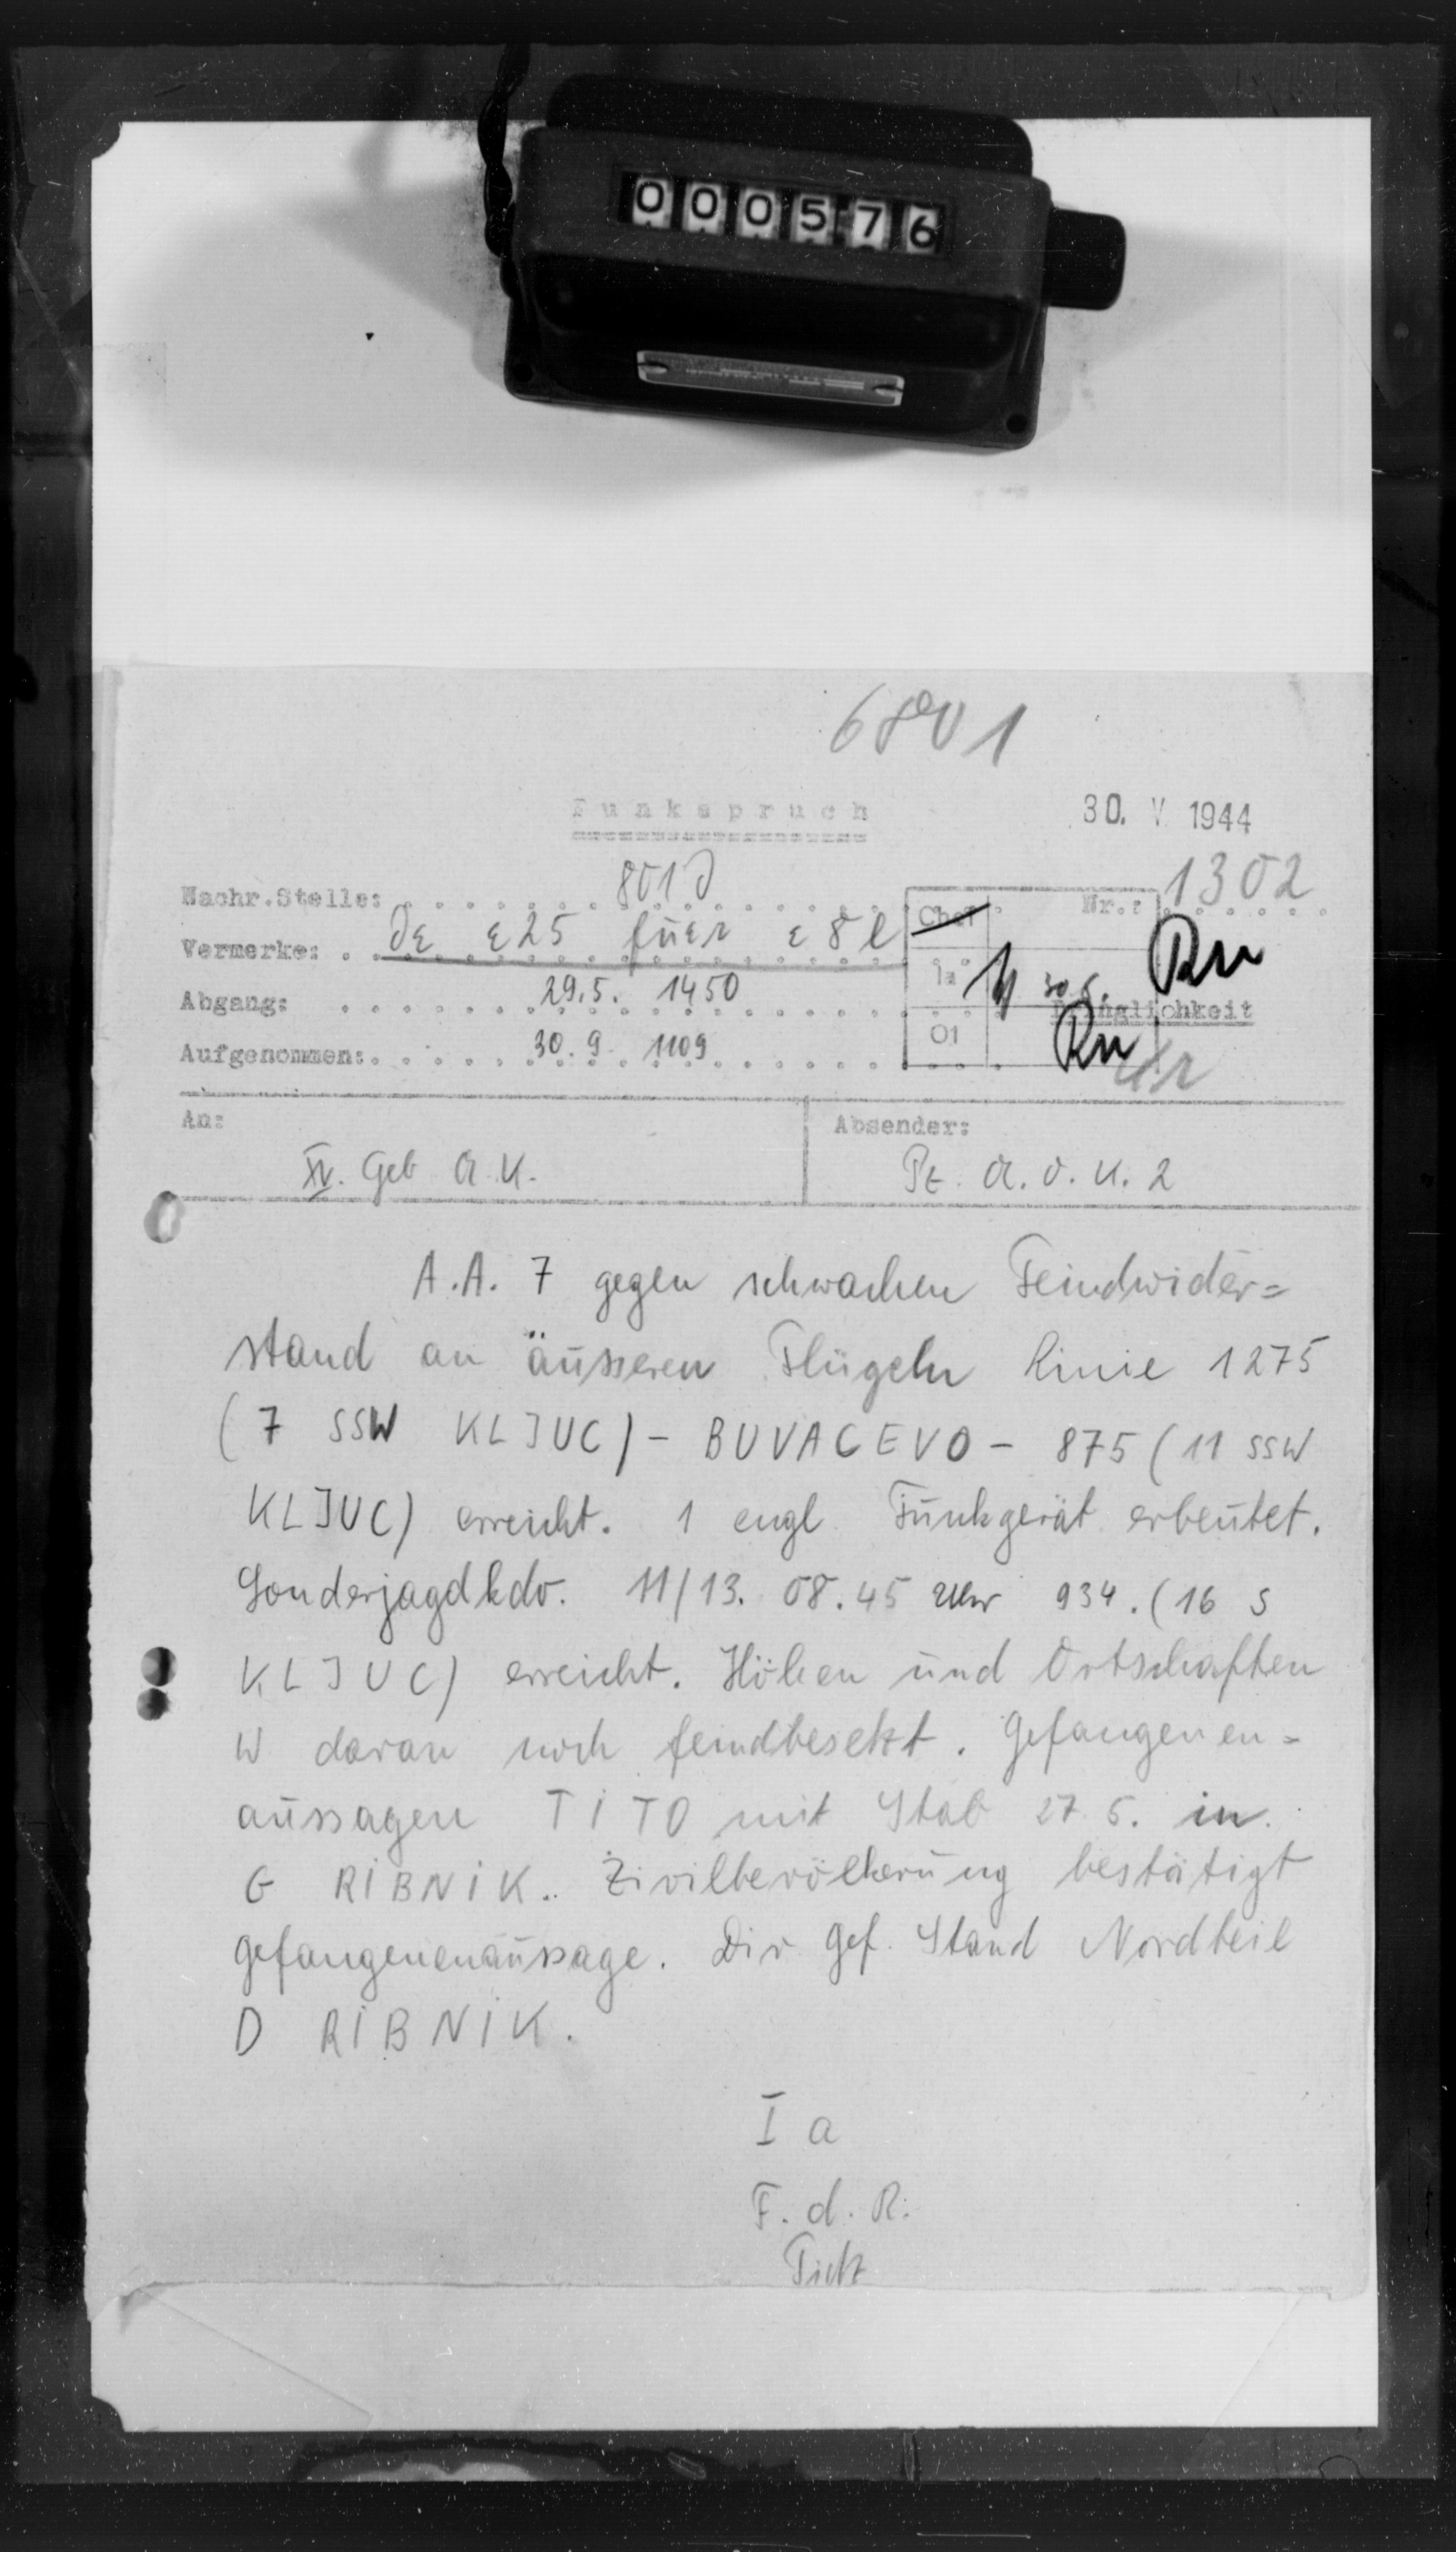 000576
6801
Funkspruch
30. V 1944
Nachr.Stelle: 801 d
Nr.: 1302
Chef
Vermerke: de ε25 fuer ε8l
Ia 30.5. Rn
Abgang: 29.5. 1450
Dringlichkeit
Aufgenommen: 30.9. 1109
O1 Rn
An: Absender:
XV. Geb A.K. Pz. A.O.K. 2
A.A. 7 gegen schwachen Feindwider=
stand an äusseren Flügeln Linie 1275
(7 SSW KLJUC) - BUVACEVO - 875 (11 SSW
KLJUC) erreicht. 1 engl Funkgerät erbeutet.
Sonderjagdkdo. 11/13. 08.45 Uhr 934. (16 S
KLJUC) erreicht. Höhen und Ortschaften
W daran noch feindbesetzt. Gefangenen=
aussagen TITO mit Stab 27.5. in
G RIBNIK. Zivilbevölkerung bestätigt
Gefangenenaussage. Div Gef. Stand Nordteil
D RIBNIK.
I a
F. d. R.